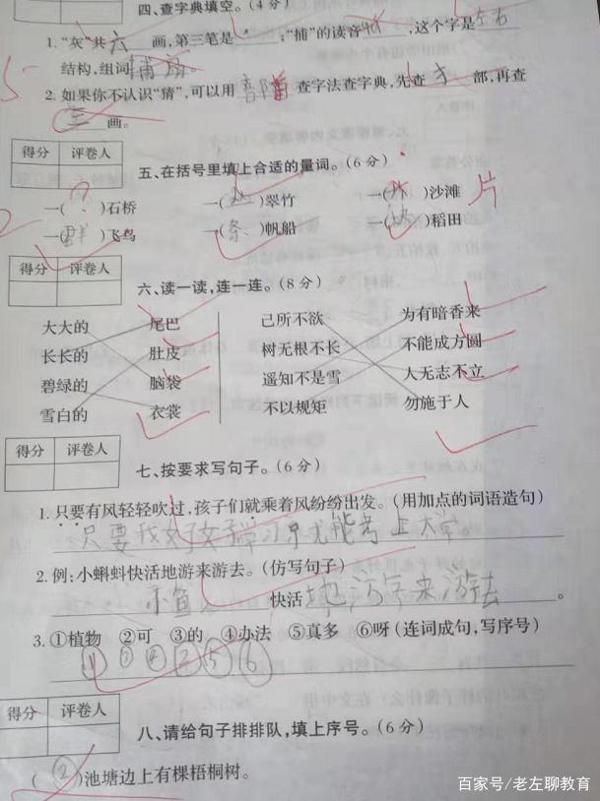 四、查字典填空。(4分)
1. “灰”共六画,第三笔是 ;“捕”的读音 ,这个字是左右
结构,组词捕鱼。
2. 如果你不认识“猜”,可以用 查字法查字典,先查 部,再查
三画。
得分 评卷人
五、在括号里填上合适的量词。(6分)
一( ? )石桥 一( )翠竹 一( )沙滩 片
一(群)飞鸟 一(条)帆船 一( )稻田
得分 评卷人
六、读一读,连一连。(8分)
大大的 尾巴 己所不欲 为有暗香来
长长的 肚皮 树无根不长 不能成方圆
碧绿的 脑袋 遥知不是雪 人无志不立
雪白的 衣裳 不以规矩 勿施于人
得分 评卷人
七、按要求写句子。(6分)
1. 只要有风轻轻吹过,孩子们就乘着风纷纷出发。(用加点的词语造句)
只要我好好学习 就能考上大学。
2. 例:小蝌蚪快活地游来游去。(仿写句子)
小鱼 快活地游来游去。
3. ①植物 ②可 ③的 ④办法 ⑤真多 ⑥呀(连词成句,写序号)
① ③ ④ ② ⑤ ⑥
得分 评卷人
八、请给句子排排队,填上序号。(6分)
( ② )池塘边上有棵梧桐树。
百家号/老左聊教育